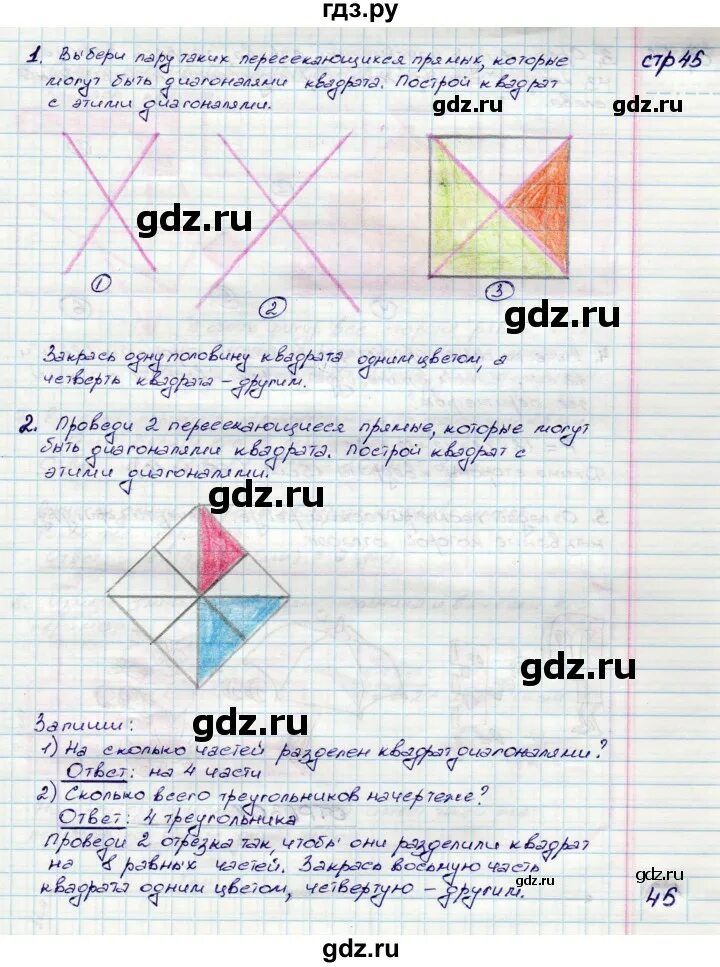 гдз.ру
стр 45
1. Выбери пару таких пересекающихся прямых, которые
могут быть диагоналями квадрата. Построй квадрат
с этими диагоналями.
gdz.ru
gdz.ru
gdz.ru
1
2
3
gdz.ru
Закрась одну половину квадрата одним цветом, а
четверть квадрата – другим.
2. Проведи 2 пересекающиеся прямые, которые могут
быть диагоналями квадрата. Построй квадрат с
этими диагоналями.
gdz.ru
gdz.ru
gdz.ru
Запиши:
1) На сколько частей разделен квадрат диагоналями?
Ответ: на 4 части
2) Сколько всего треугольников на чертеже?
Ответ: 4 треугольника
Проведи 2 отрезка так, чтобы они разделили квадрат
на 8 равных частей. Закрась восьмую часть
квадрата одним цветом, четвертую – другим.
gdz.ru
gdz.ru
45
gdz.ru